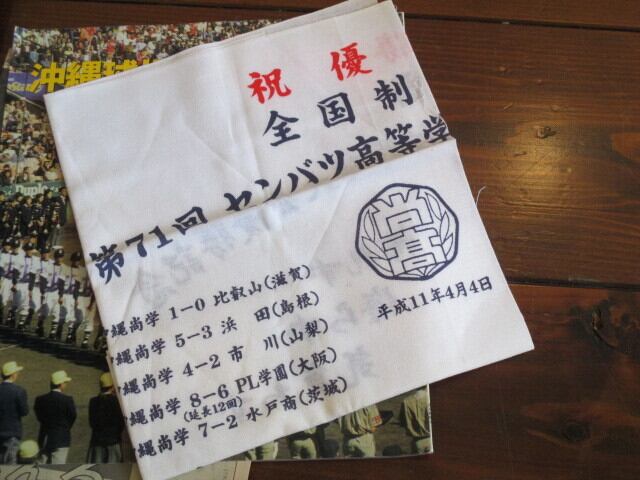 沖縄球
祝 優
全国制
第71回 センバツ高等学
尚高
縄尚学 1-0 比叡山(滋賀)
縄尚学 5-3 浜 田(島根)
縄尚学 4-2 市 川(山梨)
縄尚学 8-6 PL学園(大阪)
(延長12回)
縄尚学 7-2 水戸商(茨城)
平成11年4月4日
Duplo